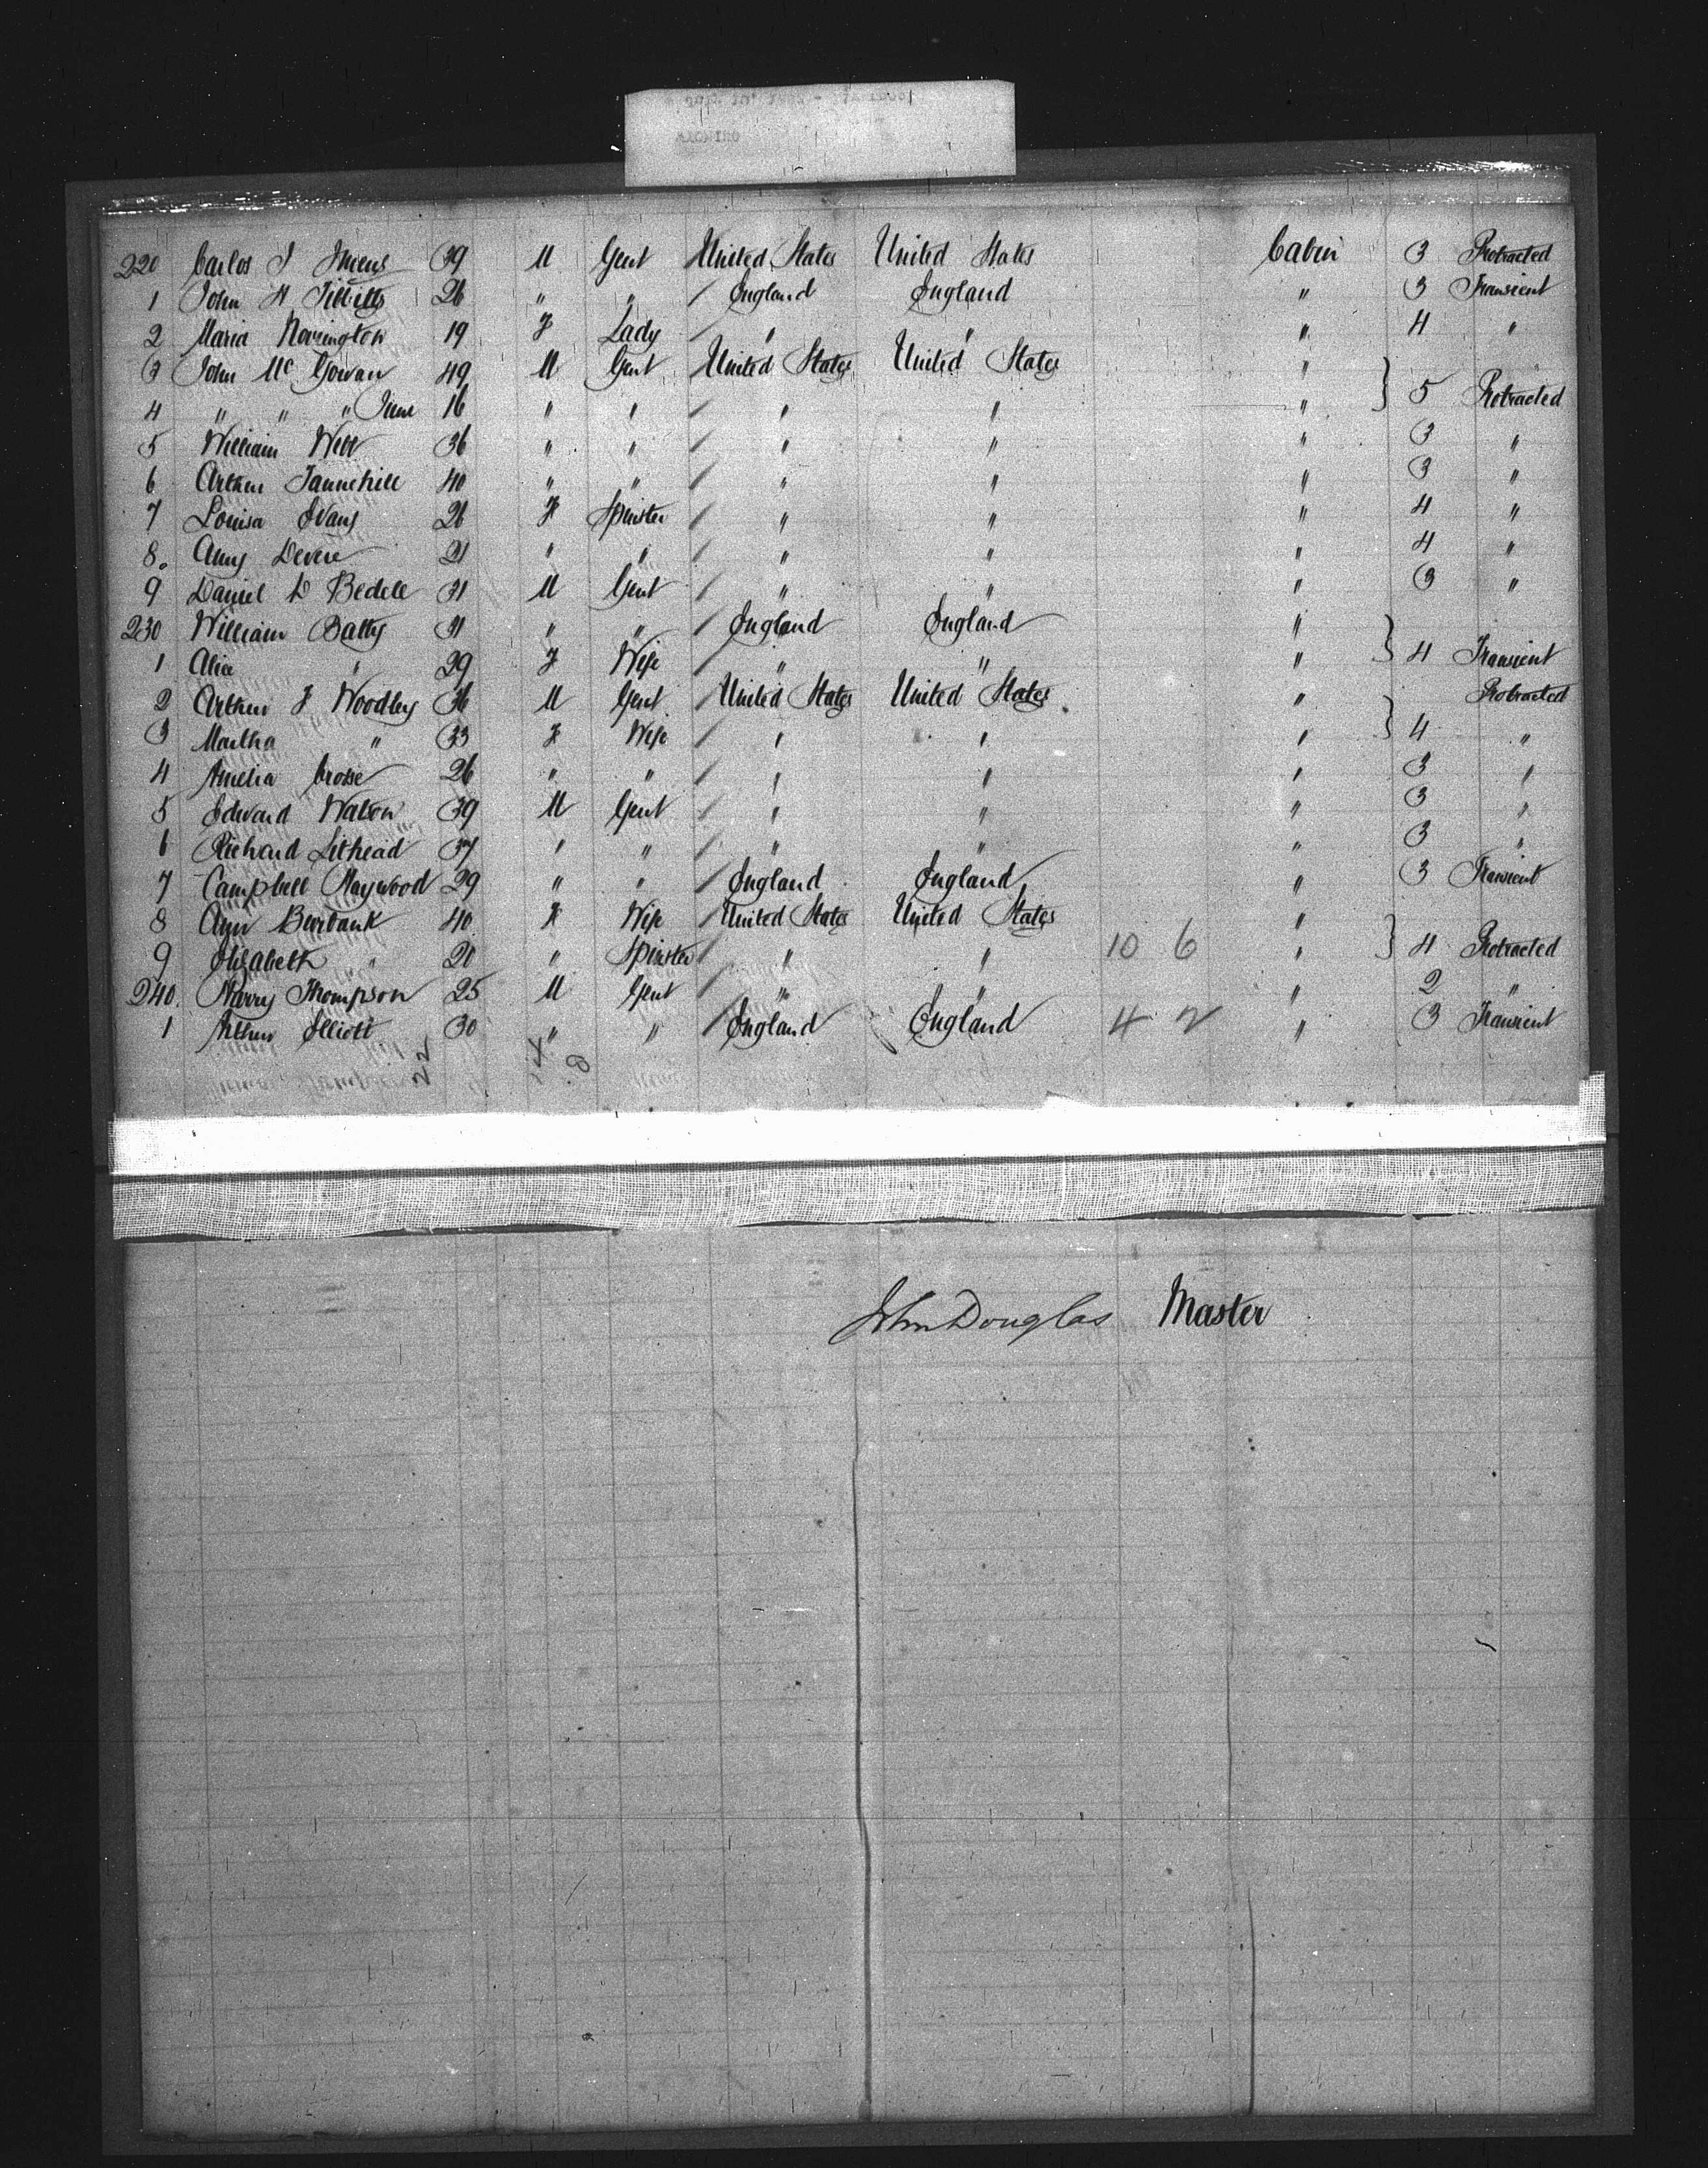 220 Carlos I 39 M Gent United States United States Cabin 3 Protracted
1 John H Tibbitts 26 " " England England " 3 Transient
2 Maria Norrington 19 F Lady " " " 4 "
3 John Mc Gowan 49 M Gent United States United States "
4 " " " Junr 16 " " " " " } 5 Protracted
5 William Webb 36 " " " " " 3 "
6 Arthur Tannehill 40 " " " " " 3 "
7 Louisa Evans 26 F Spinster " " " 4 "
8. Amy Devere 21 " " " " " 4 "
9 Daniel D Bedell 31 M Gent " " " 3 "
230 William Batty 31 " " England England "
1 Alice " 29 F Wife " " " } 4 Transient
2 Arthur F Woodley 36 M Gent United States United States " Protracted
3 Martha " 33 F Wife " " " } 4 "
4 Amelia Crosse 26 " " " " " 3 "
5 Edward Watson 39 M Gent " " " 3 "
6 Richard Lithead 37 " " " " " 3 "
7 Campbell Maywood 29 " " England England " 3 Transient
8 Ann Burbank 40 F Wife United States United States "
9 Elizabeth " 20 " Spinster " " 10 6 " } 4 Protracted
240. Harry Thompson 25 M Gent " " " 2 "
1 Arthur Elliott 30 " " England England 4 2 " 3 Transient
22 14 8
John Douglas Master